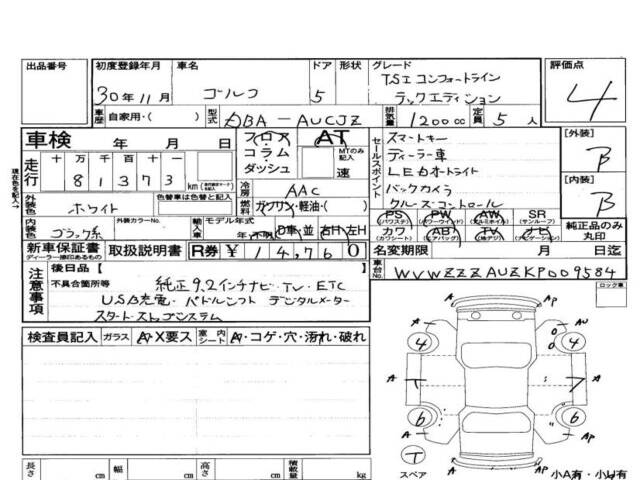 出品番号 初度登録年月 車名 ドア 形状 グレード 評価点
30年11月 ゴルフ 5 TSI コンフォートライン
ラックエディション 4
車歴 自家用・( ) 型式 DBA-AUCJZ 排気量 1200cc 定員 5人
車検 年 月 日 フロア AT セールスポイント スマートキー [外装]
コラム MTのみ記入 ディーラー車 B
走行 十 万 千 百 十 ダッシュ 速 LEDオートライト
8 1 3 7 3 km 冷房 AAC バックカメラ [内装]
外装色 ホワイト 色替車は色替と記入 燃料 ガソリン・軽油・( ) クルーズコントロール B
内装色 ブラック系 外装カラーNo. 輸入車 モデル年式 D車 並 右H 左H PS PW AW SR 純正品のみ丸印
(パワステ) (パワーウィンド) (アルミホイル) (サンルーフ)
カワ AB TV ナビ
(カワシート) (エアバッグ) (地デジ) (ナビゲーション)
新車保証書 取扱説明書 R券 ¥14,760 名変期限 月 日迄
ディーラー捺印あるもの
車台No. WVWZZZAUZKP009584
注意事項 後日品( )
不具合箇所等 純正9.2インチナビ・TV・ETC
USB充電・パドルシフト デジタルメーター
スタートストップシステム
ロック車
検査員記入 ガラス A・X要ス 室内シート A・コゲ・穴・汚れ・破れ
A AP A AU
4 4
A A
6 6
A AP
T スペア A AP
小A有・小U有
長さ cm 幅 cm 高さ cm 積載量 kg